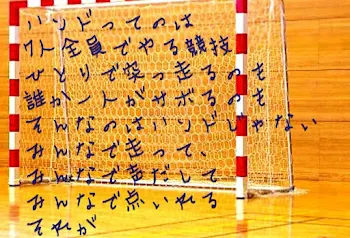 ハンドってのは
7人全員でやる競技
ひとりで突っ走るのも
誰か一人がサボるのも
そんなのはハンドじゃない
みんなで走って、
みんなで声だして
みんなで点いれる
それが